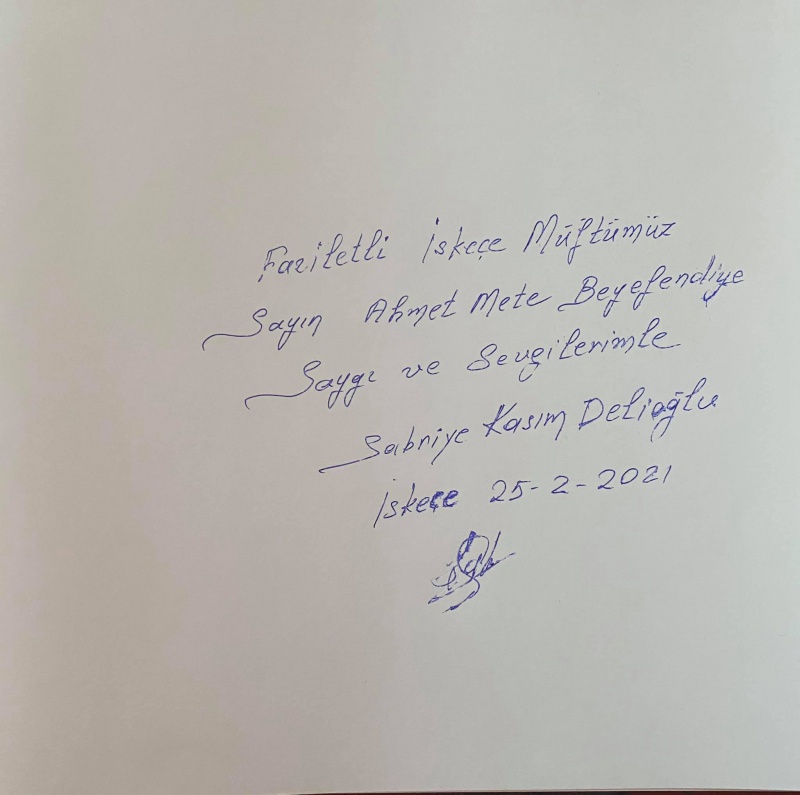 Faziletli İskeçe Müftümüz
Sayın Ahmet Mete Beyefendiye
Saygı ve Sevgilerimle
Sabriye Kasım Delioğlu
İskeçe 25-2-2021